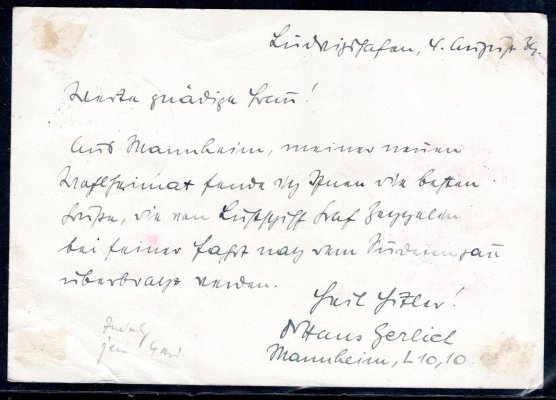 Ludwigshafen, 4. August 39.
Werte gnädige Frau!
Aus Mannheim, meiner neuen
Wahlheimat sende ich Ihnen die besten
Grüße, die von Luftschiff Graf Zeppelin
bei seiner Fahrt nach dem Sudetengau
überbracht werden.
Heil Hitler!
Hans Gerlich
Mannheim, L 10, 10.